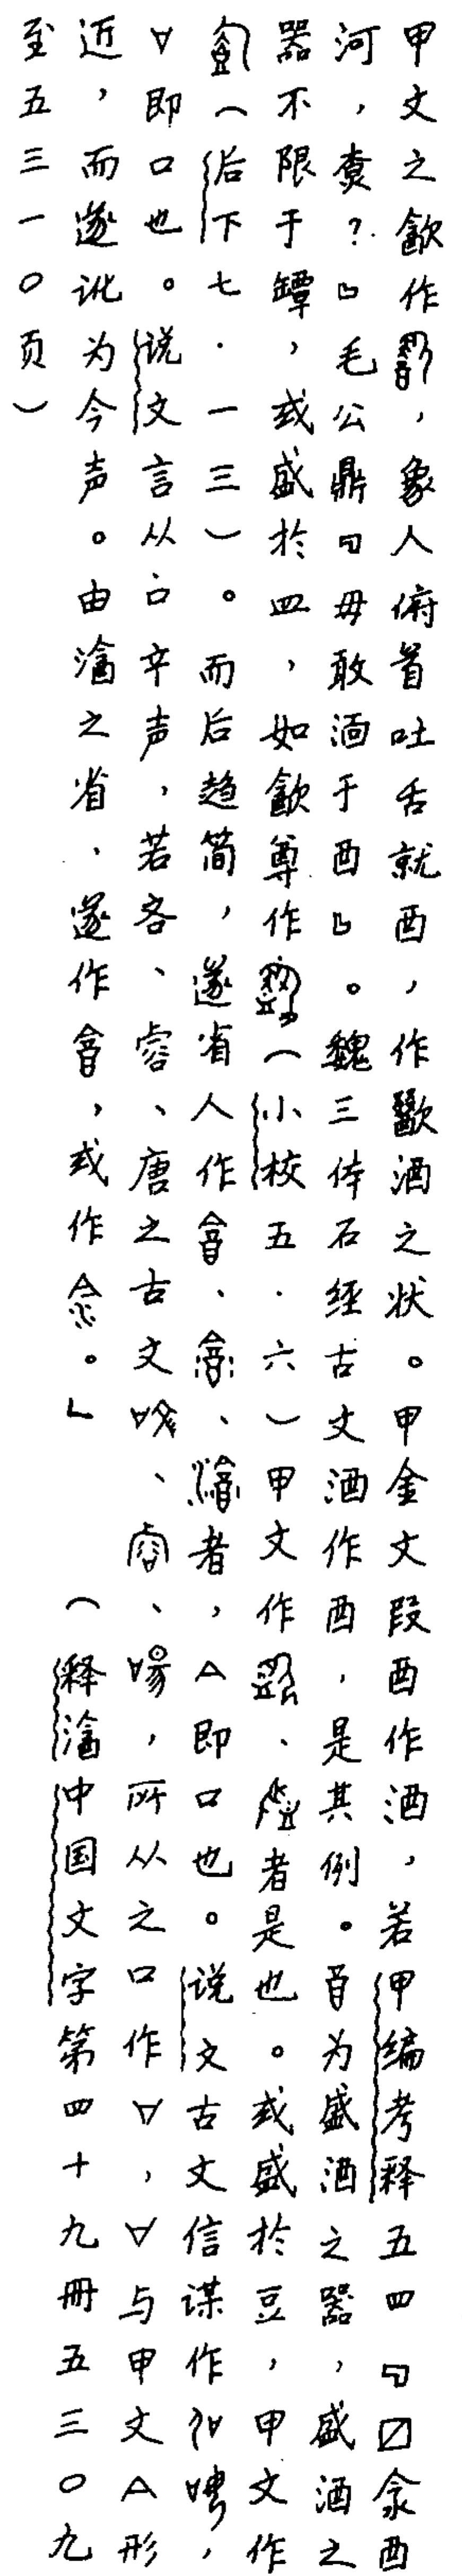 甲文之歙作，象人俯首吐舌就酉，作歠酒之状。甲金文段酉作酒，若甲编考释五四『〼酓酉
河，𡊄？』毛公鼎『毋敢湎于酉』。魏三体石经古文酒作酉，是其例。酋为盛酒之器，盛酒之
器不限于罈，或盛於皿，如歙尊作（小校五·六）甲文作、者是也。或盛於豆，甲文作
（后下七·一三）。而后趋简，遂省人作酓、、者，A即口也。说文古文信谋作、，
∀即口也。说文言从口辛声，若吝、容、唐之古文、、，所从之口作∀，∀与甲文A形
近，而遂讹为今声。由之省，遂作酓，或作念。」（释中国文字第四十九册五三〇九
至五三一〇页）